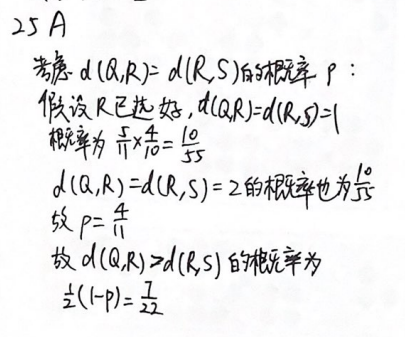 25 A
考虑 d(Q,R)= d(R,S)的概率 P:
假设R已选好, d(Q,R)=d(R,S)=1
概率为 5/11×4/10=10/55
d(Q,R)=d(R,S)=2的概率也为10/55
故 p=4/11
故 d(Q,R)>d(R,S)的概率为
1/2(1-p)=7/22